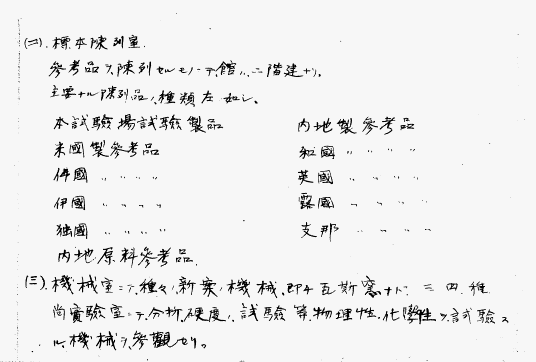 (二). 標本陳列室.
参考品ヲ陳列セルモノニテ館ハ二階建ナリ。
主要ナル陳列品ノ種類左ノ如シ。
本試験場試験製品 内地製参考品
米國製参考品 和國 〃 〃 〃 〃
佛國 〃 〃 〃 〃 英國 〃 〃 〃 〃
伊國 〃 〃 〃 〃 露國 〃 〃 〃 〃
独國 〃 〃 〃 〃 支那 〃 〃 〃 〃
内地原料参考品.
(三). 機械室ニテ種々ノ新案ノ機械、即チ瓦斯窯ナド 三四種
尚實驗室ニテ分析、硬度、試験等物理性、化學性ヲ試験ス
ル機械ヲ参觀セリ。